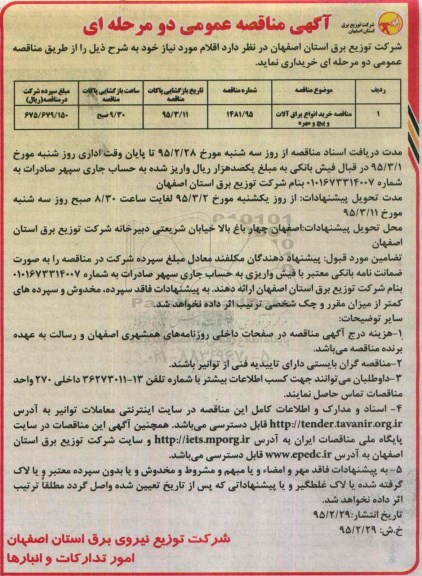 شرکت توزیع برق
استان اصفهان
آگهی مناقصه عمومی دو مرحله ای
شرکت توزیع برق استان اصفهان در نظر دارد اقلام مورد نیاز خود به شرح ذیل را از طریق مناقصه
عمومی دو مرحله ای خریداری نماید.
ردیف موضوع مناقصه شماره مناقصه تاریخ بازگشایی پاکات مناقصه ساعت بازگشایی پاکات مناقصه مبلغ سپرده شرکت در مناقصه(ریال)
۱ مناقصه خرید انواع یراق آلات و پیچ و مهره ۱۴۸۱/۹۵ ۹۵/۳/۱۱ ۹/۳۰ صبح ۶۷۵/۶۷۹/۱۵۰
مدت دریافت اسناد مناقصه از روز سه شنبه مورخ ۹۵/۲/۲۸ تا پایان وقت اداری روز شنبه مورخ
۹۵/۳/۱ در قبال فیش بانکی به مبلغ یکصدهزار ریال واریز شده به حساب جاری سپهر صادرات به
شماره ۰۱۰۱۶۷۳۳۱۴۰۰۷ بنام شرکت توزیع برق استان اصفهان
مدت تحویل پیشنهادات: از روز یکشنبه مورخ ۹۵/۳/۲ لغایت ساعت ۸/۳۰ صبح روز سه شنبه
مورخ ۹۵/۳/۱۱
محل تحویل پیشنهادات:اصفهان چهار باغ بالا خیابان شریعتی دبیرخانه شرکت توزیع برق استان
اصفهان
تضامین مورد قبول: پیشنهاد دهندگان مکلفند معادل مبلغ سپرده شرکت در مناقصه را به صورت
ضمانت نامه بانکی معتبر یا فیش واریزی به حساب جاری سپهر صادرات به شماره ۰۱۰۱۶۷۳۳۱۴۰۰۷
بنام شرکت توزیع برق استان اصفهان ارائه دهند. به پیشنهادات فاقد سپرده، مخدوش و سپرده های
کمتر از میزان مقرر و چک شخصی ترتیب اثر داده نخواهد شد.
سایر توضیحات:
۱-هزینه درج آگهی مناقصه در صفحات داخلی روزنامه‌های همشهری اصفهان و رسالت به عهده
برنده مناقصه می‌باشد.
۲-مناقصه گران بایستی دارای تاییدیه فنی از توانیر باشند.
۳-داوطلبان می‌توانند جهت کسب اطلاعات بیشتر با شماره تلفن ۱۳-۳۶۲۷۳۰۱۱ داخلی ۲۷۰ واحد
مناقصات تماس حاصل نمایند.
۴- اسناد و مدارک و اطلاعات کامل این مناقصه در سایت اینترنتی معاملات توانیر به آدرس
http://tender.tavanir.org.ir قابل دسترسی می‌باشد. همچنین آگهی این مناقصات در سایت
پایگاه ملی مناقصات ایران به آدرس http://iets.mporg.ir و سایت شرکت توزیع برق استان
اصفهان به آدرس www.epedc.ir قابل دسترسی می‌باشد.
۵- به پیشنهادات فاقد مهر و امضاء و یا مبهم و مشروط و مخدوش و یا بدون سپرده معتبر و یا لاک
گرفته شده یا لاک غلطگیر و یا پیشنهاداتی که پس از تاریخ تعیین شده واصل گردد مطلقا ترتیب
اثر داده نخواهد شد.
تاریخ انتشار:۹۵/۲/۲۹
خ.ش: ۹۵/۲/۲۹
شرکت توزیع نیروی برق استان اصفهان
امور تدارکات و انبارها